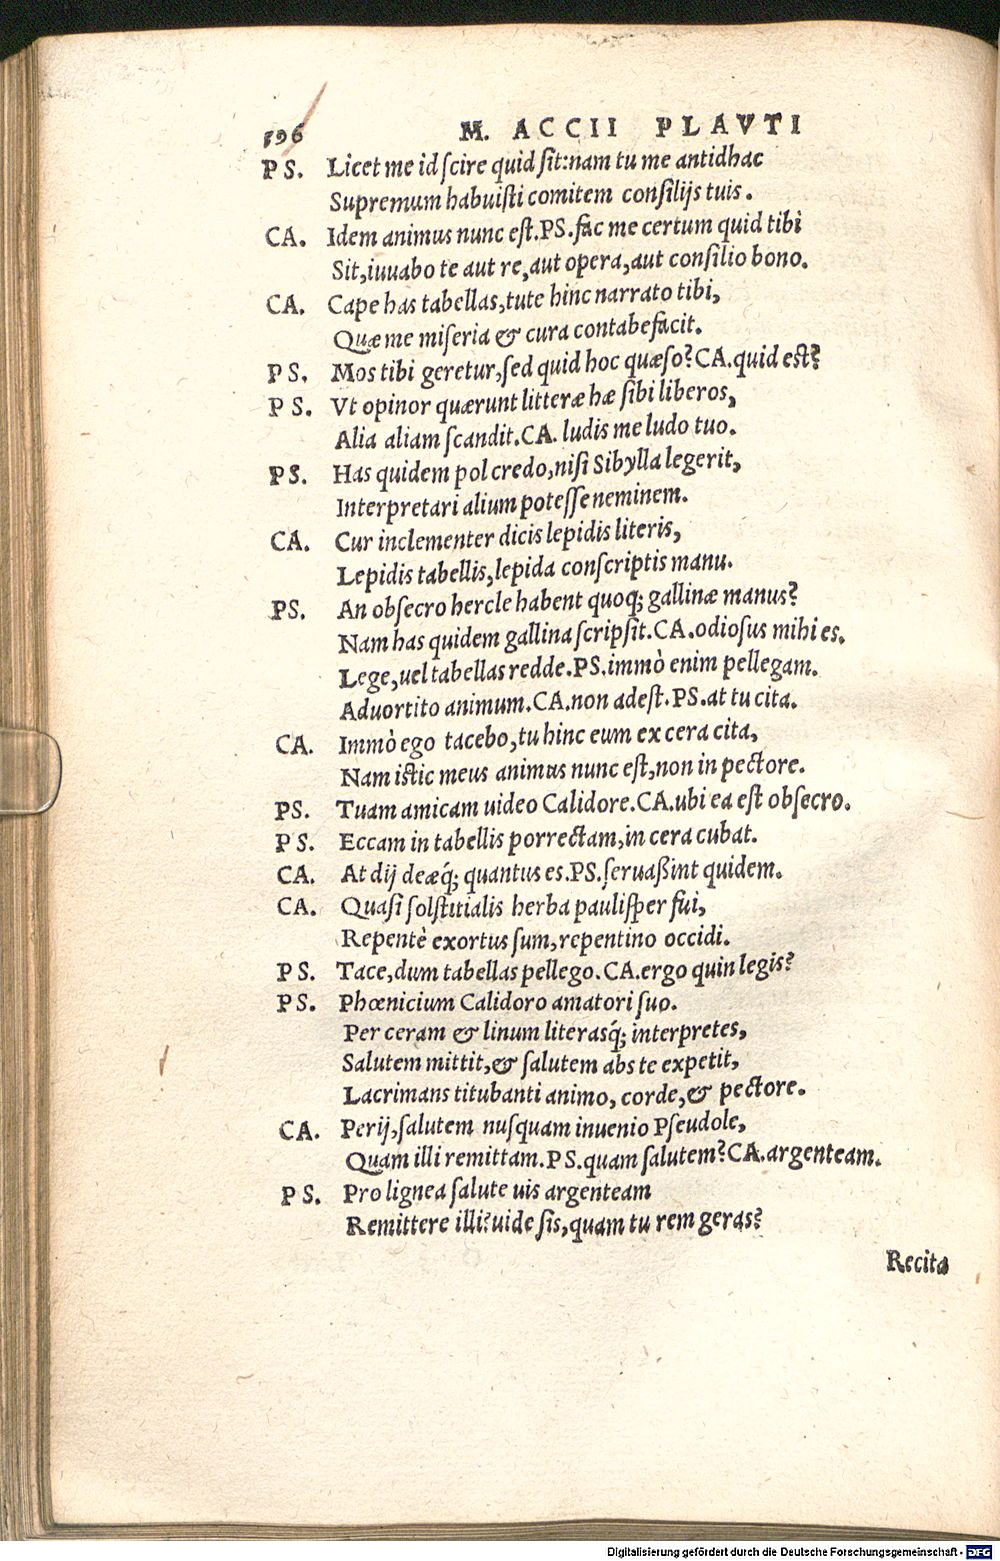 596 M. ACCII PLAVTI
PS. Licet me id ſcire quid ſit:nam tu me antidhac
Supremum habuiſti comitem conſilijs tuis.
CA. Idem animus nunc eſt.PS.fac me certum quid tibi
Sit,iuuabo te aut re,aut opera,aut conſilio bono.
CA. Cape has tabellas,tute hinc narrato tibi,
Quæ me miſeria & cura contabefacit.
PS. Mos tibi geretur,ſed quid hoc quæſo?CA.quid eſt?
PS. Vt opinor quærunt litteræ hæ ſibi liberos,
Alia aliam ſcandit.CA. ludis me ludo tuo.
PS. Has quidem pol credo,niſi Sibylla legerit,
Interpretari alium poteſſe neminem.
CA. Cur inclementer dicis lepidis literis,
Lepidis tabellis,lepida conſcriptis manu.
PS. An obſecro hercle habent quoq; gallinæ manus?
Nam has quidem gallina ſcripſit.CA.odioſus mihi es.
Lege,uel tabellas redde.PS.immò enim pellegam.
Aduortito animum.CA.non adeſt.PS.at tu cita.
CA. Immò ego tacebo,tu hinc eum ex cera cita,
Nam iſtic meus animus nunc eſt,non in pectore.
PS. Tuam amicam uideo Calidore.CA.ubi ea eſt obſecro.
PS. Eccam in tabellis porrectam,in cera cubat.
CA. At dij deæq́; quantus es.PS.ſeruaßint quidem.
CA. Quaſi ſolſtitialis herba pauliſper fui,
Repentè exortus ſum,repentino occidi.
PS. Tace,dum tabellas pellego.CA.ergo quin legis?
PS. Phœnicium Calidoro amatori ſuo.
Per ceram & linum literasq́; interpretes,
Salutem mittit,& ſalutem abs te expetit,
Lacrimans titubanti animo, corde,& pectore.
CA. Perij,ſalutem nuſquam inuenio Pſeudole,
Quam illi remittam.PS.quam ſalutem?CA.argenteam.
PS. Pro lignea ſalute uis argenteam
Remittere illi?uide ſis,quam tu rem geras?
Recita
Digitalisierung gefördert durch die Deutsche Forschungsgemeinschaft - DFG